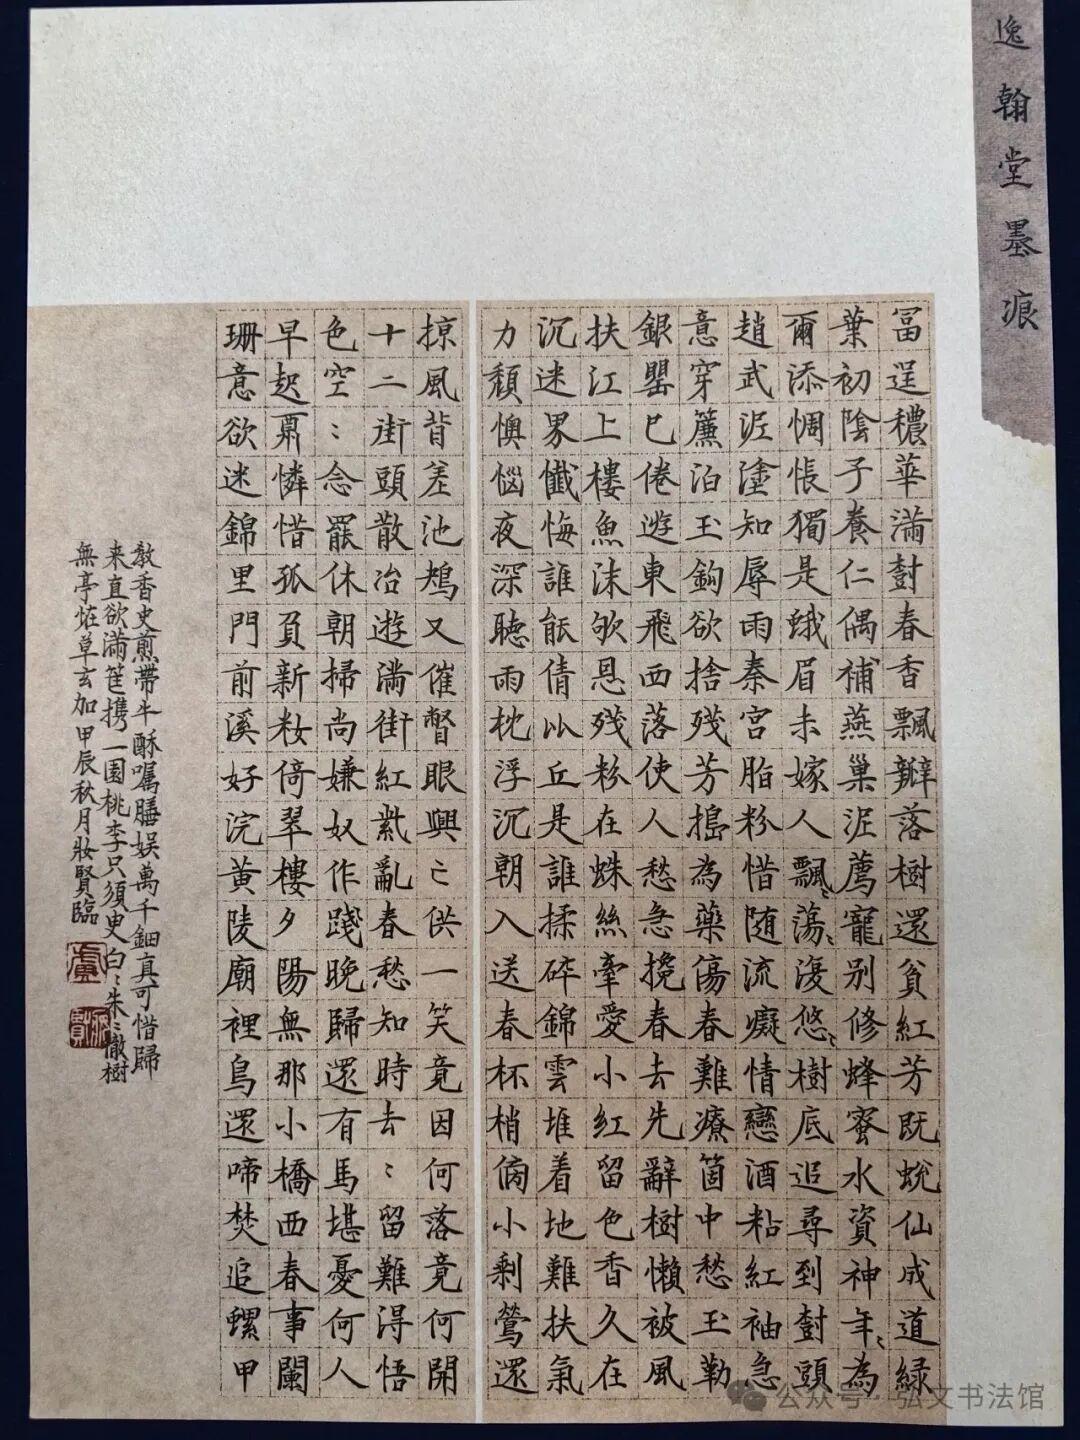 逸翰堂墨痕
冨逞穠華滿尌春香飄瓣落樹還貧紅芳既蛻仙成道緑
葉初陰子養仁偶補燕巢泥薦寵别修蜂蜜水資神年〻為
爾添惆悵獨是蛾眉未嫁人飄〻蕩〻復悠〻樹底追尋到尌頭
趙武泥塗知辱雨秦宮脂粉惜随流癡情戀酒粘紅袖急
意穿簾泊玉鉤欲捨殘芳搗為藥傷春難療箇中愁玉勒
銀罌已倦遊東飛西落使人愁急攙春去先辭樹懶被風
扶江上樓魚沫吹恩殘粉在蛛絲牽愛小紅留色香久在
沉迷界懺悔誰能倩比丘是誰揉碎錦雲堆着地難扶氣
力頹懊惱夜深聽雨枕浮沉朝入送春杯梢傍小剩鶯還
掠風背差池鴂又催瞥眼興亡供一笑竟因何落竟何開
十二街頭散冶遊滿街紅紫亂春愁知時去〻留難得悟
色空〻念罷休朝掃尚嫌奴作踐晚歸還有馬堪憂何人
早起肩憐惜孤負新妝倚翠樓夕陽無那小橋西春事闌
珊意欲迷錦里門前溪好浣黄陵廟裡鳥還啼焚追螺甲
教香史煎帶牛酥囑膳娱萬千鈿真可惜歸
来直欲滿筐携一園桃李只須臾白〻朱〻徹樹
無亭怪草玄加甲辰秋月妝賢臨
公众号·弘文书法馆